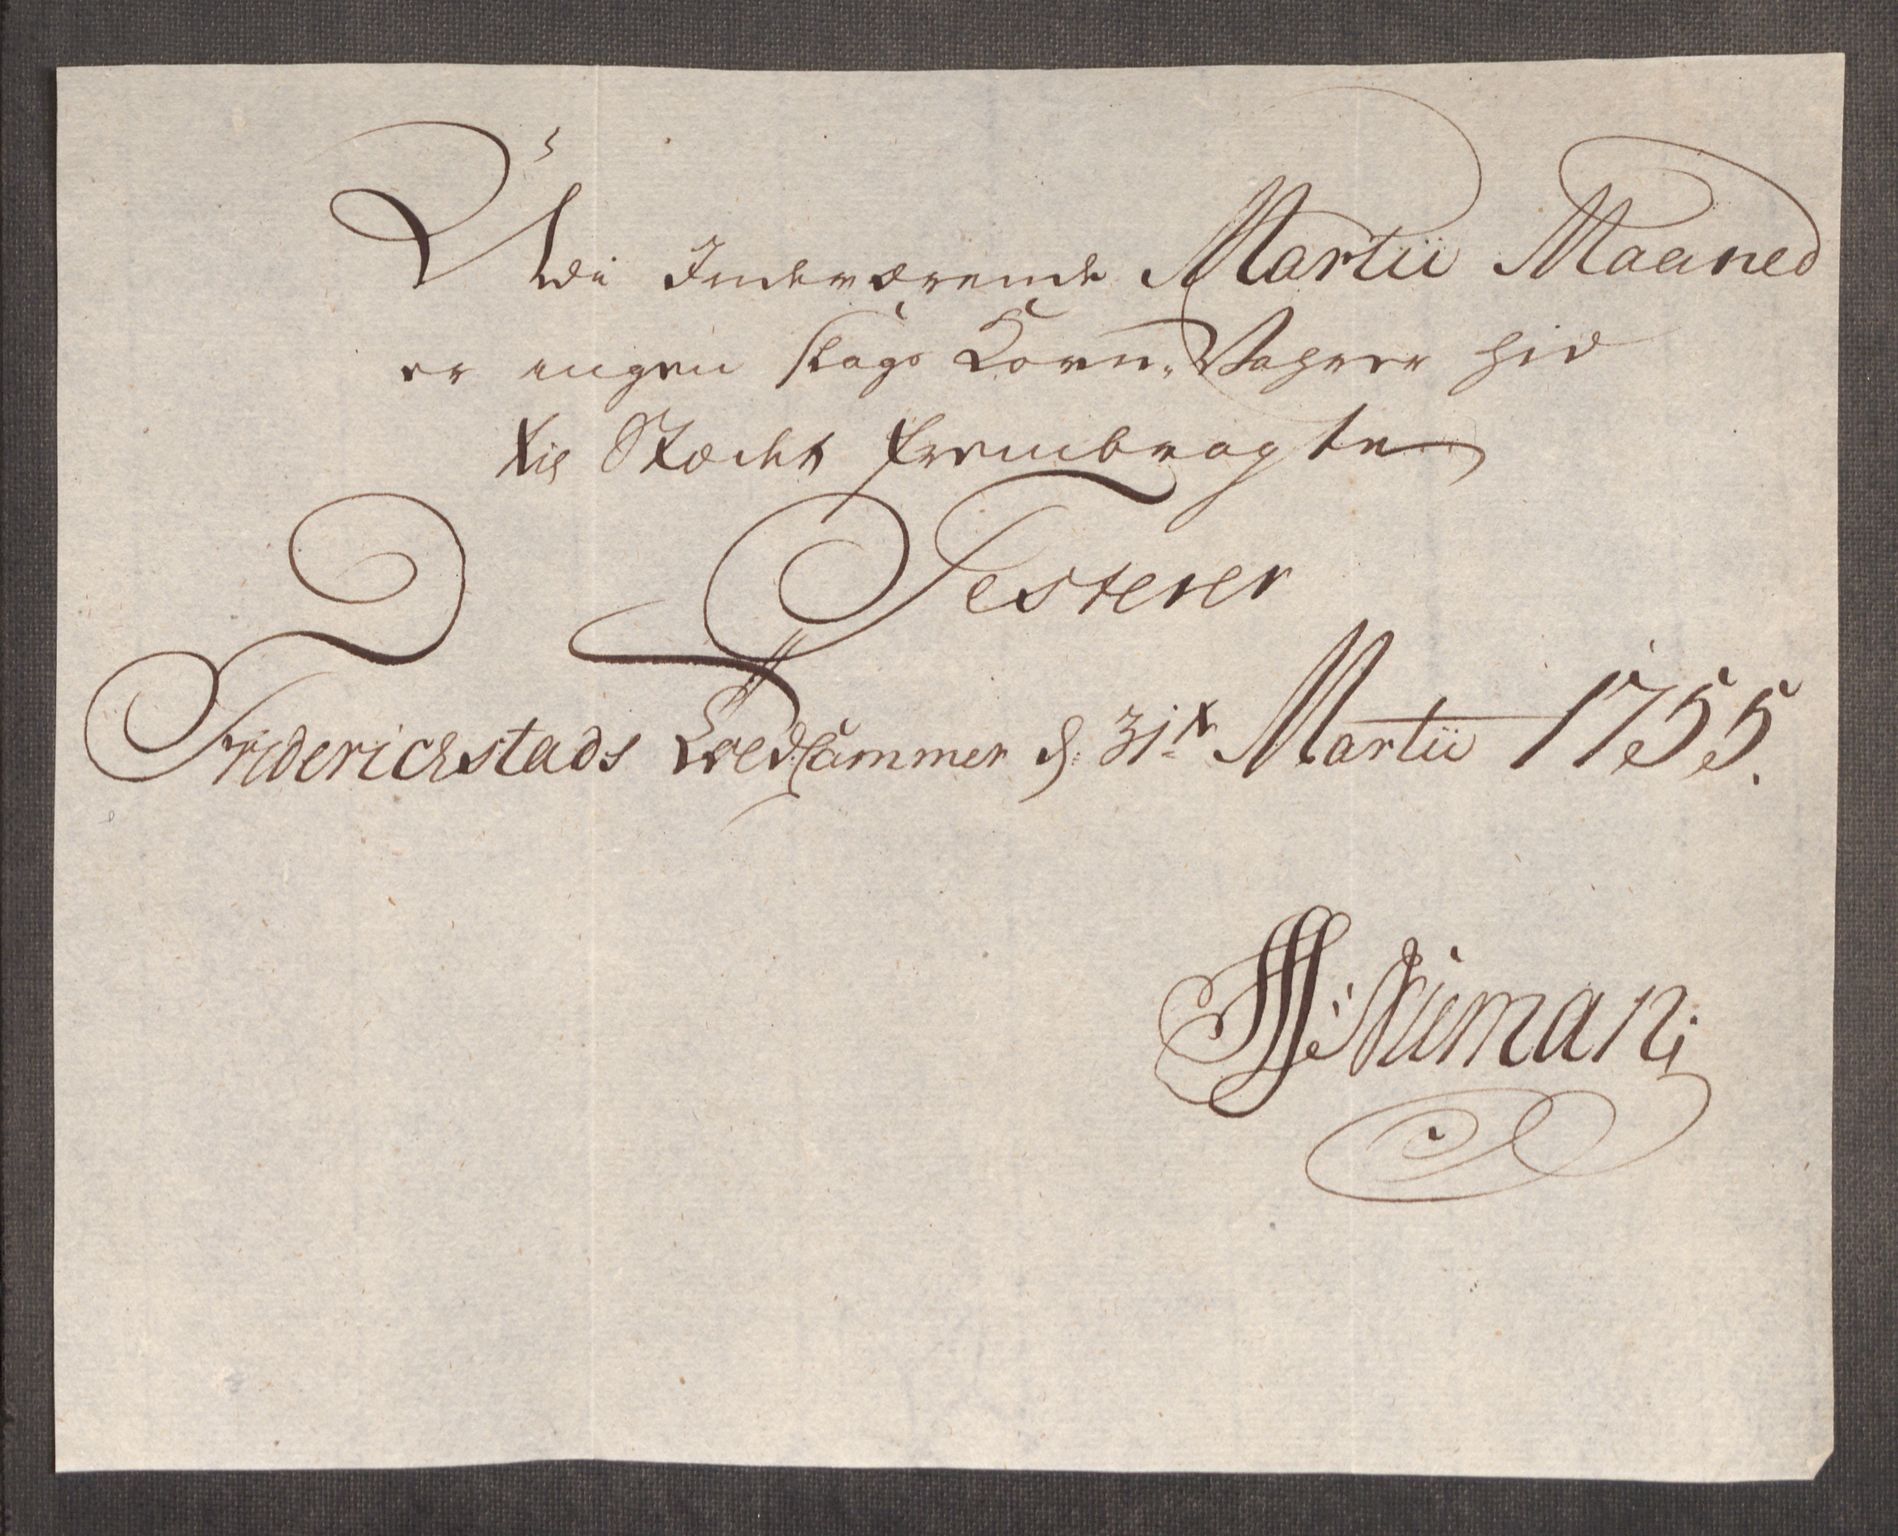 Udi Indeværende Martii Maaned
er ingen slags Korn-Vahrer hid
til Stædet frembragte
Testerer
Friderichstads Toldkammer d: 31te Martii 1755.
Niiman